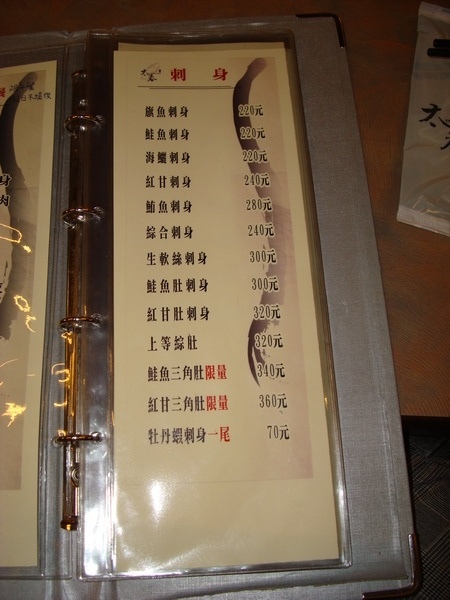 刺身
旗魚刺身 220元
鮭魚刺身 220元
海鱺刺身 220元
紅甘刺身 240元
鮪魚刺身 280元
綜合刺身 240元
生軟絲刺身 300元
鮭魚肚刺身 300元
紅甘肚刺身 320元
上等綜肚 320元
鮭魚三角肚限量 340元
紅甘三角肚限量 360元
牡丹蝦刺身一尾 70元